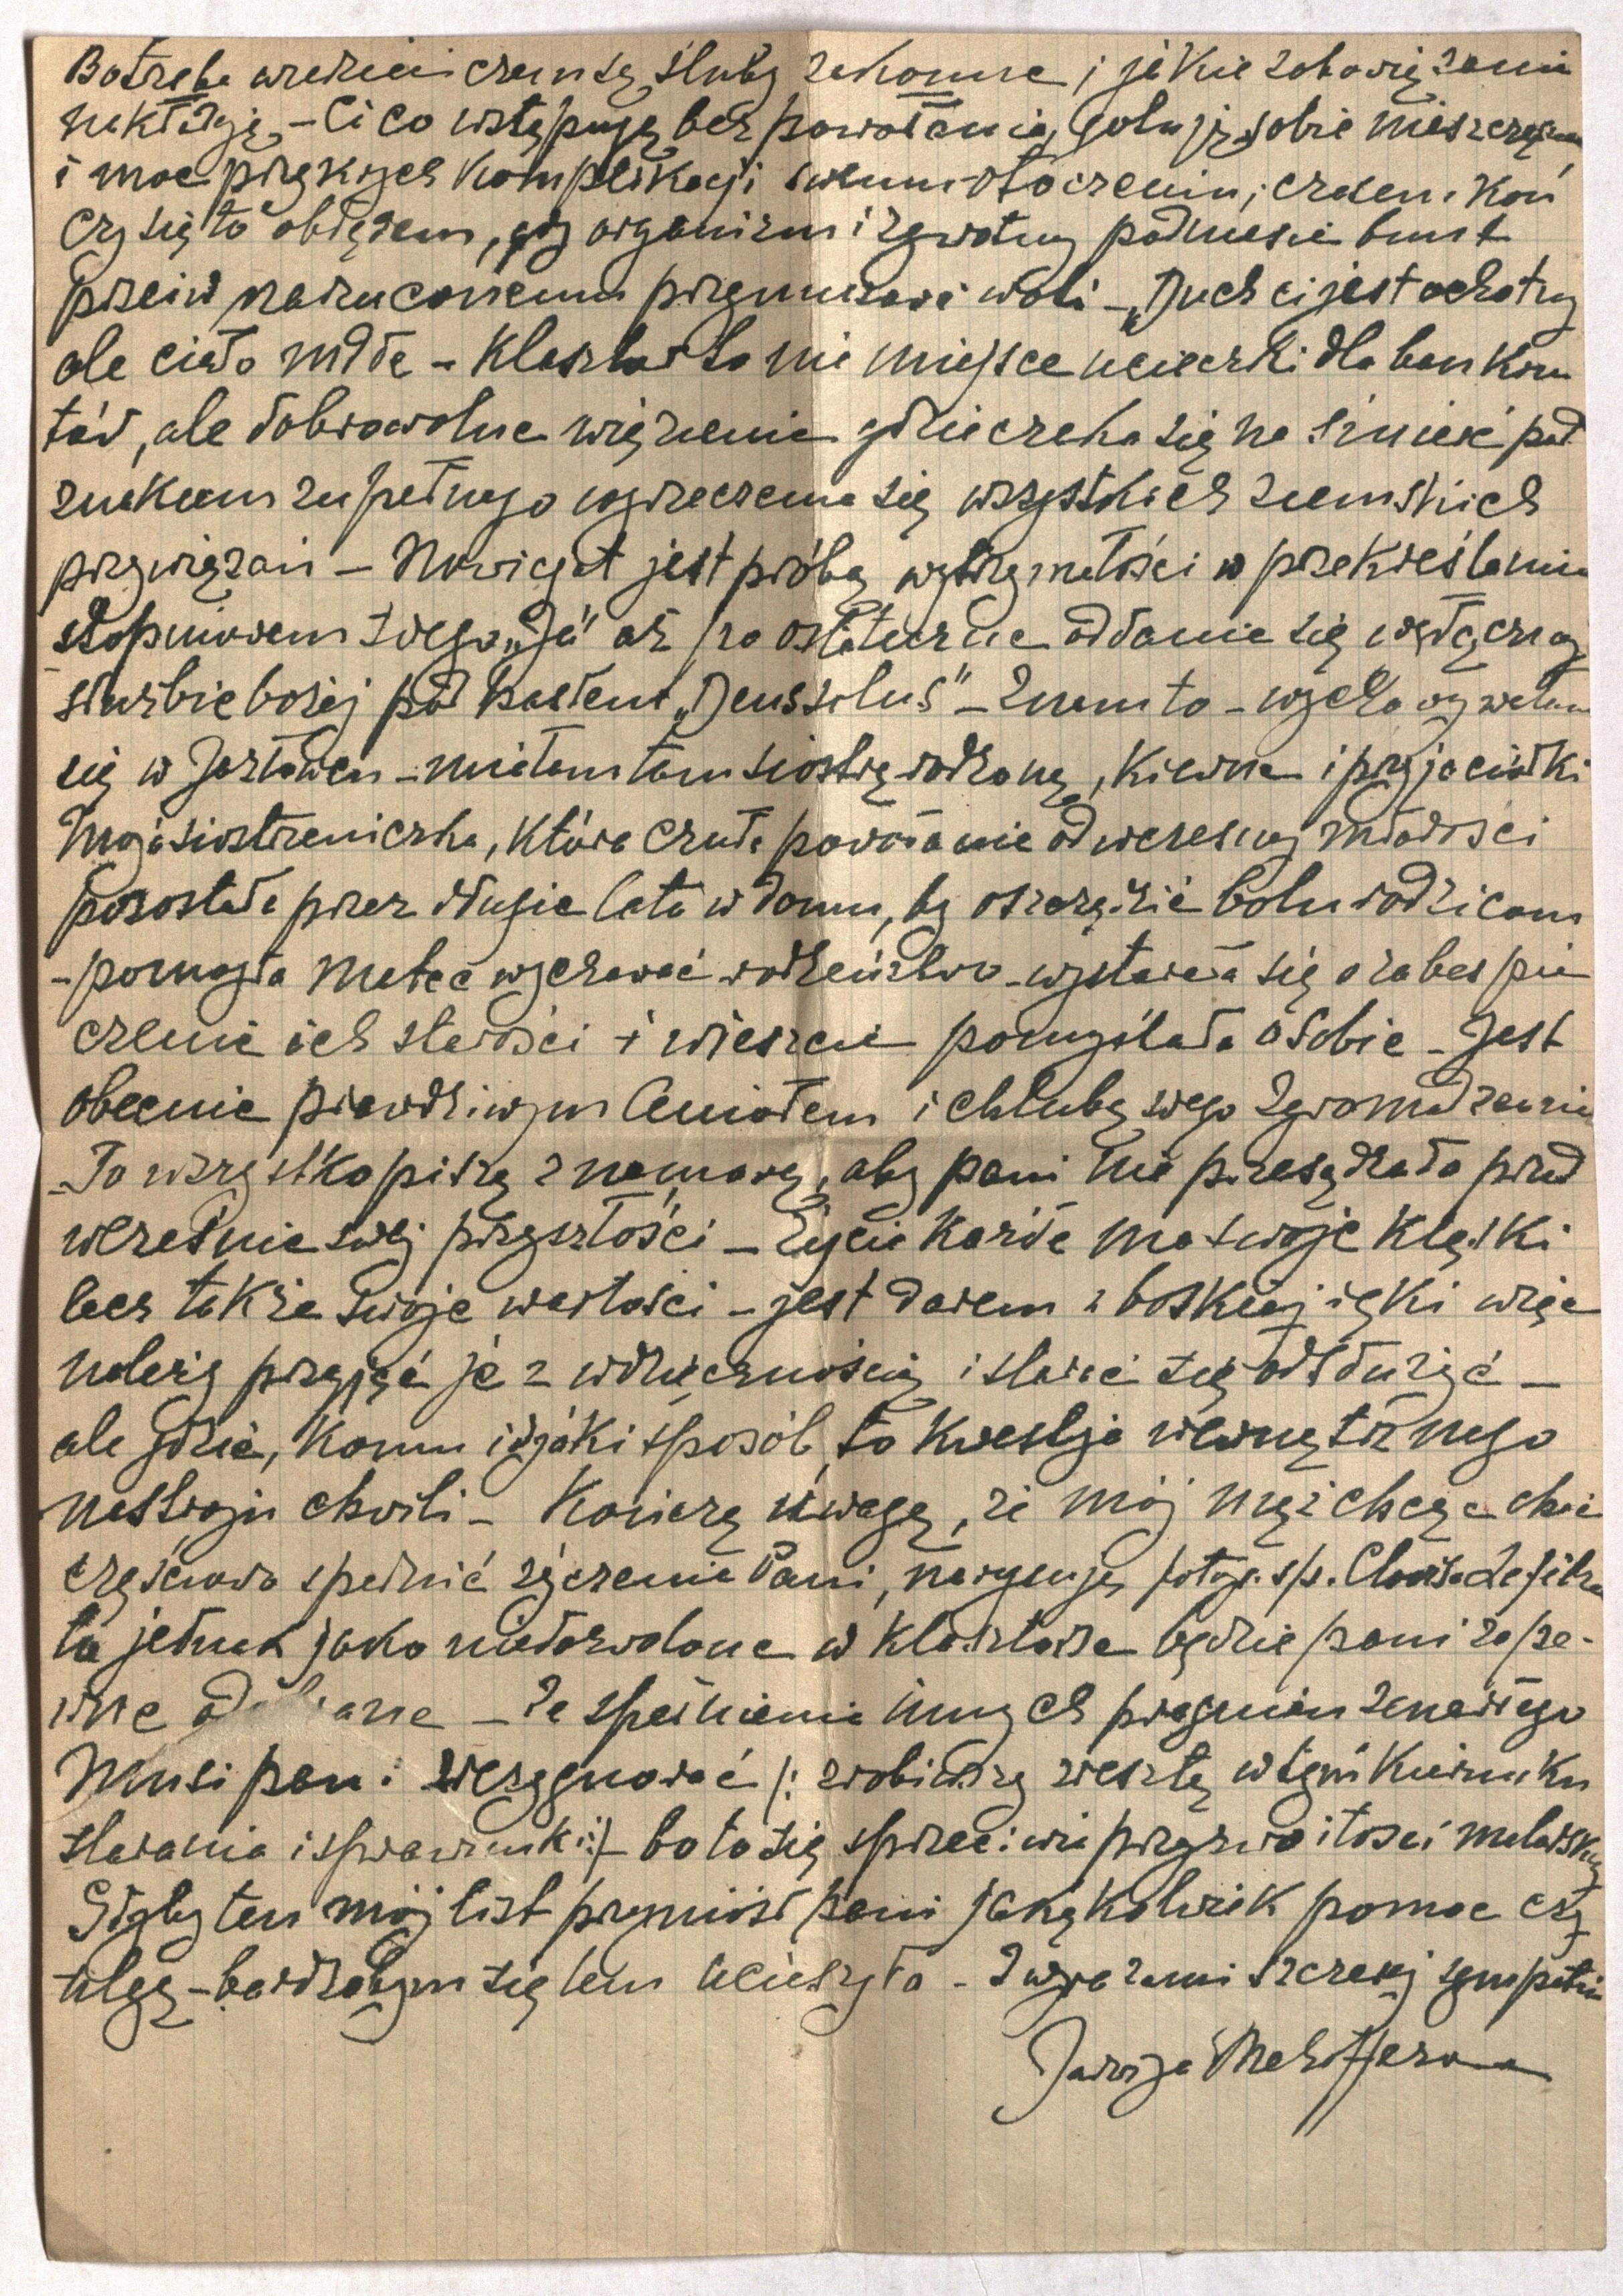 Bo trzeba wiedzieć czem są śluby zakonne i jakie zobowiązania
nakładają – Ci co wstępują bez powołania, gotują sobie nieszczęście
i moc przykrych komplikacji swemu otoczeniu, czasem koń
czy się to obłędem, gdy organizm żywotny podniesie bunt
przeciw narzuconemu przymusowi woli – „Duch ci jest ochotny
ale ciało mdłe – Klasztor to nie miejsce ucieczki dla bankru
tów, ale dobrowolne więzienie gdzie czeka się na śmierć pod
znakiem zupełnego wyrzeczenia się wszystkich ziemskich
przywiązań – Nowicjat jest próbą wytrzymałości w przekreślaniu
stopniowem swego „Ja" aż po ostateczne oddanie się wyłącznej
służbie bożej pod hasłem „Deus solus" – Znam to – wychowywałam
się w Jarosławiu – miałam tam siostrę rodzoną, kuzynki i przyjaciółki
Moja siostrzeniczka, która czuła powołanie od wczesnej młodości
pozostała przez długie lata w domu, by oszczędzić bólu rodzicom
– pomogła Matce wychować rodzeństwo – wystarała się o zabespie
czenie ich starości i wreszcie pomyślała o sobie – Jest
obecnie prawdziwym Aniołem i chlubą swego Zgromadzenia
– To wszystko piszę z namową, aby pani nie przesądzała przed
wcześnie swej przyszłości – Życie każde ma swoje klęski
lecz także swoje wartości – jest darem z boskiej ręki więc
należy przyjąć je z wdzięcznością i starać się odsłużyć –
ale gdzie, komu i w jaki sposób, to kwestja wewnętrznego
nastroju chwili – Kończę uwagą, że mój mąż chcąc choć
częściowo spełnić życzenie Pani, narysuje fotogr. ś/p.
ta jednak jako niedozwolone w klasztorze będzie pani zape-
wne – Ze spełnienia innych pragnień zmarłego
Musi pani zrezygnować /: zrobiwszy zresztą w tym kierunku
starania i sprawunki :/ – bo to się sprzeciwia przyzwoitości malarskiej
Gdyby ten mój list przyniósł pani jakąkolwiek pomoc czy
ulgę – bardzobym się tem ucieszyła – Z wyrazami szczerej sympatii
Jadwiga Mehofferowa